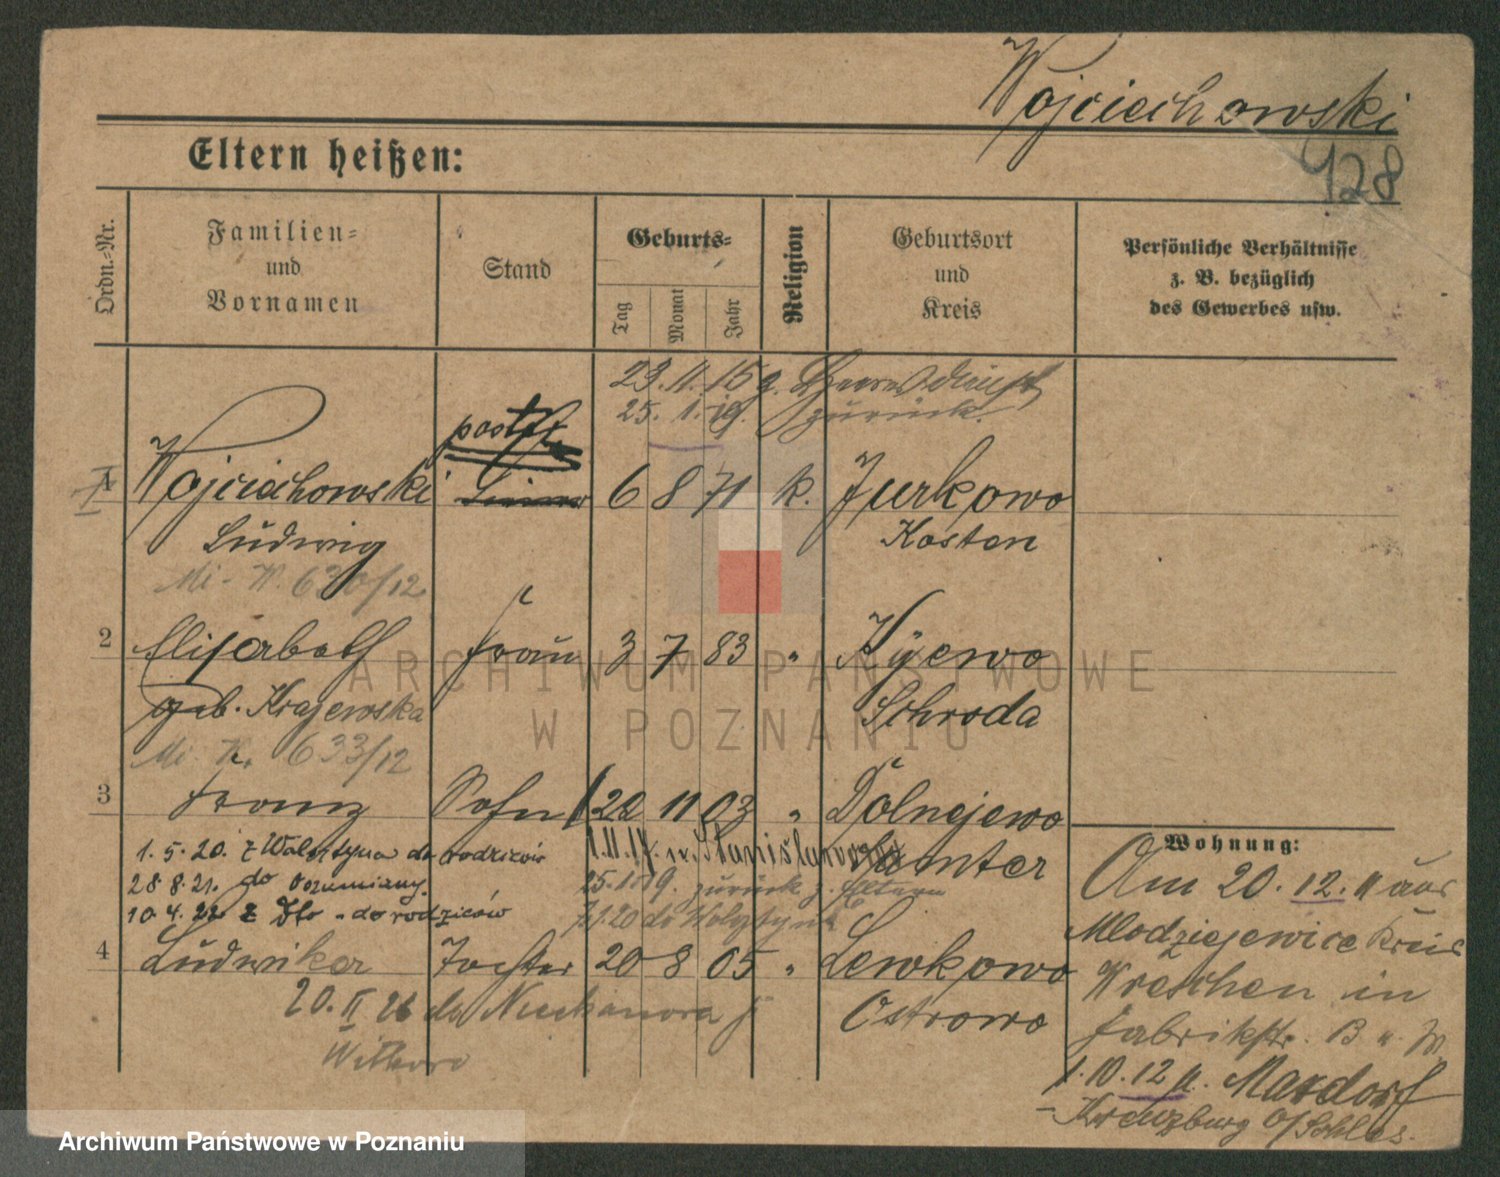 Wojciechowski
928
Eltern heißen:
Ordn.-Nr.
Familien-
und
Vornamen
Stand
Geburts-
Tag
Monat
Jahr
Religion
Geburtsort
und
Kreis
Persönliche Verhältnisse
z. B. bezüglich
des Gewerbes usw.
23. 11. 15 z.
25. 1. 19. zurück.
1 Wojciechowski 6 8 71 k. Jurkowo
Ludwig Kosten
630/12
2 Elisabeth Frau 3 7 83 " Kijewo
geb. Krajewska Schroda
633/12
3 Franz Sohn 22 11 03 " Dolnejewo
Samter
1. 5. 20. z Wolsztyna do rodziców
28. 8. 21. do
25. 1. 19. zurück z. Eltern
10. 4. 22. z Dto - do rodziców
7.1.20 do Wolsztyna
4 Ludwika Tochter 20 8 05 " Lewkowo
Ostrowo
20. II 26 do
Witkowo
Wohnung:
Am 20. 12. 11 aus
Mlodziejewice Kreis
Wreschen in
Fabrikstr.
1. 10. 12 n. Mardorf
Kreuzburg O/Schles.
ARCHIWUM PAŃSTWOWE
W POZNANIU
Archiwum Państwowe w Poznaniu